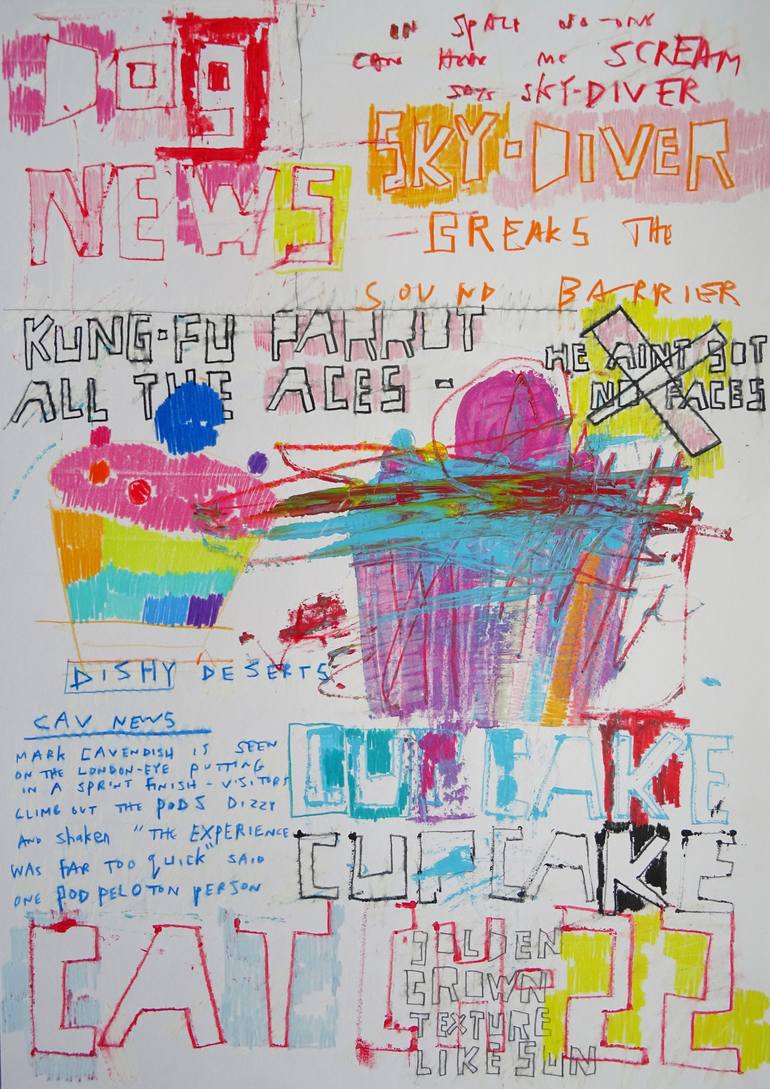 Dog
NEWS
IN SPACE NO-ONE
CAN HEAR ME SCREAM
SAYS SKY-DIVER
SKY-DIVER
BREAKS THE
SOUND BARRIER
KUNG-FU PARROT
ALL THE ACES -
HE AINT GOT
NO FACES
DISHY DESERTS
CAV NEWS
MARK CAVENDISH IS SEEN
ON THE LONDON-EYE PUTTING
IN A SPRINT FINISH - VISITORS
CLIMB OUT THE PODS DIZZY
AND shaken "THE EXPERIENCE
WAS FAR TOO quick" SAID
ONE POD PELOTON PERSON
CUPCAKE
CUPCAKE
EAT
GOLDEN
CROWN
TEXTURE
LIKE SUN